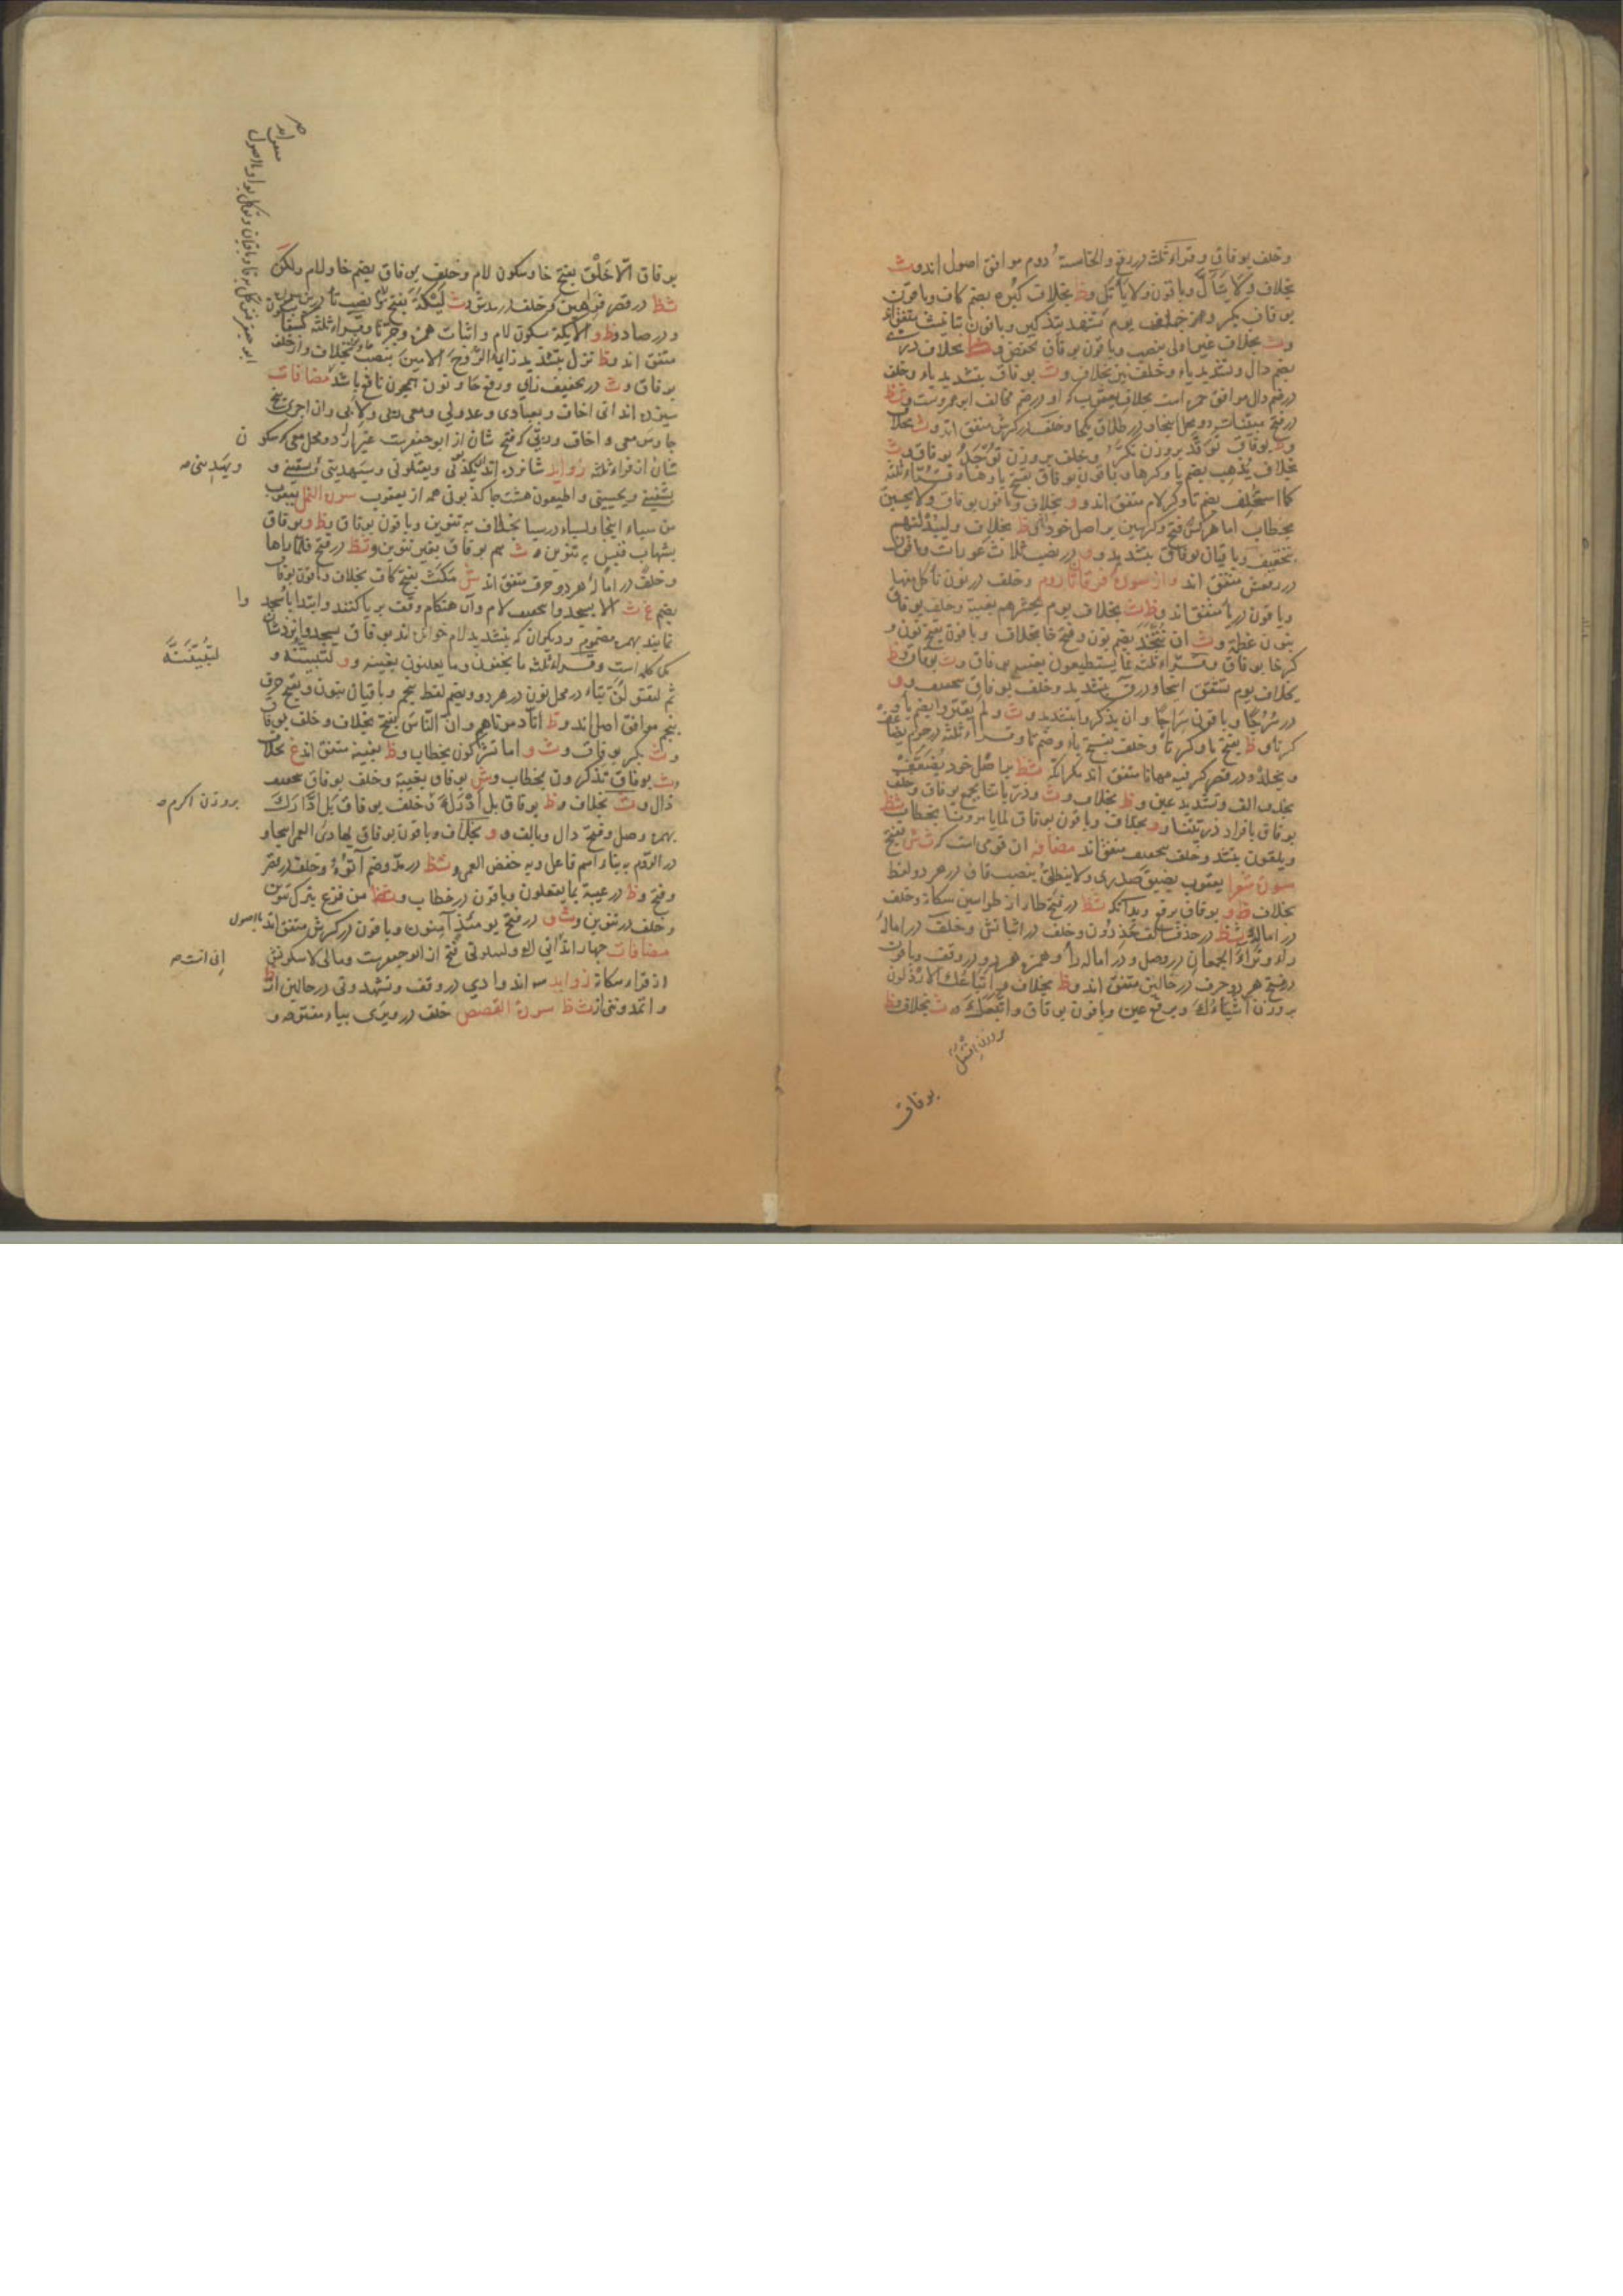 وخلف بوفاق وقراء ثلثه در رفع والخامسة دوم موافق اصول اند وث
بخلاف ولا يتألّ وباقون ولا يأتل وظ بخلاف كبره بضم كاف وباقون
بوفاق بكسر وهمز خلف يوم تشهد بتذكير وباقون بتأنيث متفق اند
وث بخلاف غير اولى بنصب وباقون بوفاق بخفض و بخلاف درى
بضم دال وتشديد ياء وخلف نيز بخلاف وث بوفاق بتشديد ياء وخلف
در ضم دال موافق حمزه است بخلاف يعقوب كه او در ضم مخالف ابوعمروست وشظ
در فتح مبينات دو محل اينجا ودر طلاق يكجا وخلف در كسرش متفق اند وث بخلاف
وظ بوفاق توقد بروزن تكرّر وخلف بروزن بوفاق وث
بخلاف يذهب بضم يا وكسر ها وباقون بوفاق بفتح يا وها وقراء ثلثه
كما استخلف بضم تا وكسر لام متفق اند وو بخلاف وباقون بوفاق ولا يحسبن
بخطاب اما هركس فتح وكسر سين بر اصل خود اند ظ بخلاف وليبدلنهم
بتخفيف وباقيان بوفاق بتشديد وو در نصب ثلاث عورات وباقون
در رفعش متفق اند واز سورة فرقان تا روم وخلف در نون نأكل منها
وباقون در يا متفق اند وظ ث بخلاف يوم يحشرهم بغيبة وخلف بوفاق
بنون عظمة وث ان نتّخذ بضم نون وفتح خا بخلاف وباقون بفتح نون و
كسر خا بوفاق وقراء ثلثه فما يستطيعون بغيبه بوفاق وث بوفاق وظ
بخلاف يوم تشقق اينجا ودر ق بتشديد وخلف بوفاق بتخفيف وو
در سُرُجًا وباقون سِرَاجًا وان يذكر وا بتشديد وث ولم يقتروا بضم يا و
كسر تا وظ بفتح يا وكسر تا وخلف بفتح ياء وضم تا وقراء ثلثه در جزم يضاعف
ويخلد ودر قصر كسر فيه مهانا متفق اند مكر انكه شظ بر اصل خود يضعّف
بحذف الف وتشديد عين وظ بخلاف وث وذرّياتنا بجمع بوفاق وخلف
بوفاق بافراد ذريتنا وو بخلاف وباقون بوفاق لما يأمرونا بخطاب شظ
ويلقون بتشد وخلف بتخفيف متفق اند مضافه ان قومى است كه ث ش بفتح
سورة شعرا يعقوب يضيق صدرى ولا ينطلق بنصب قاف در هر دو لفظ
بخلاف ظ و بوفاق برفع وبدانكه شظ در فتح طا از طواسين سكانه وخلف
در اماله شظ در حذف الف حذرون وخلف در اثباتش وخلف در اماله
راء وتراء الجمعان در وصل ودر اماله را وهمزه هر دو در وقف وباقون
در فتح هر دو حرف در حالين متفق اند وظ بخلاف واتباعك الارذلون
بروزن اشياءك وبرفع عين وباقون بوفاق واتبعك و ث بخلاف وظ
بوفاق
بوفاق الّا خَلْق بفتح خا وسكون لام وخلف بوفاق بضم خا ولام ولكن
شظ در قصر فرهين كه خلف در مدش وث ليكة بفتح لام ونصب تا
ودر صاد وظ و الايكة سكون لام واثبات همزه وجر تا وقراء ثلثه كسفا
متفق اند وظ نزّل بتشديد زاى الرّوحَ الامينَ بنصب بخلاف واز خلف
بوفاق وث در تخفيف زاى ورفع حا ونون همچون نافع باشد مضافات
سيزده اند انى اخاف وبعبادى وعدو لى ومعى ربى ولأبى وان اجرى پنج
جا ومن معى واخاف وربى كه فتح شان از ابو جعفرست غير از دو محل معى كه سكون
شان از قراء ثلثه زوايد شانزده اند ان يكذّبون ويقتلونى وسيهدينى ويسقينى و
يشفينى ويحيينى واطيعون هشت جا كذبونى همه از يعقوب سورة النمل يعقوب
من سباء اينجا ولسباء در سبا بخلاف به تنوين وباقون بوفاق وظ وبوفاق
بشهاب قبس به تنوين و ث هم بوفاق بغير تنوين وشظ در فتح فلما راها
وخلف در اماله هر دو حرف متفق اند ش مكث بفتح كاف بخلاف وباقون بوفاق
بضم غ ث الا يسجدوا بتخفيف لام وآن هنكام وقف بر يا كنند وابتدا باسجدوا
نمايند بهمزه مضموم وديكران كه بتشديد لام خوانده اند بوفاق يسجدوا نزد شان
يك كلمه است وقراء ثلثه ما يخفون وما يعلنون بغيبه وو لتبيتنه و
ثم لتقولنّ بتاء در محل نون در هر دو وبضم لفظ پنجم وباقيان بنون وبفتح حرف
پنجم موافق اصل اند وظ انّا دمرناهم وانّ النّاس بفتح بخلاف وخلف بوفاق
وث بكسر بوفاق وث و اما تشركون بخطاب وظ بغيبه متفق اند غ بخلاف
وث بوفاق تذكرون بخطاب وش بوفاق بغيبة وخلف بوفاق بتخفيف
ذال وث بخلاف وظ بوفاق بل أَدْرَكَ وخلف بوفاق بل ادّارك
بهمزه وصل وفتح دال وبالف وو بخلاف وباقون بوفاق بهادى العمى اينجا و
در الروم به بناء اسم فاعل وبه خفض العمى وشظ در مدّ وضم آتوهُ وخلف در قصر
وفتح وظ در غيبة بما يفعلون وباقون در خطاب وشظ من فزع بترك تنوين
وخلف در تنوين وث و در فتح يومئذ آمنون وباقون در كسرش متفق اند باصول
مضافات چهار اند انى اك وليبلونى فتح از ابو جعفرست ومالى لا سكونش
از قراء سكانه زوايد سه اند وادى در وقف وتشهدونى در حالين از ظ
واتمدونى از ث ظ سورة القصص خلف در ويرى بياء مفتوحه و
ويهدينى صح
لتبيتنه
بروزن اكرم صح
انى انست صح